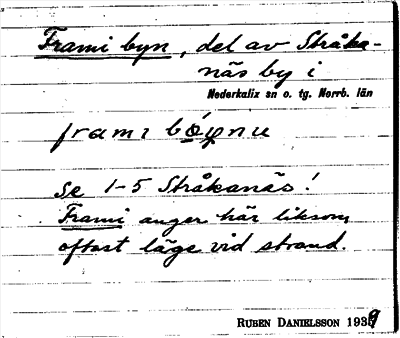 Frami byn, del av Stråka-
näs by i
Nederkalix sn o. tg. Norrb. län
frami
Se 1-5 Stråkanäs!
Frami anger här liksom
oftast läge vid strand.
RUBEN DANIELSSON 1939